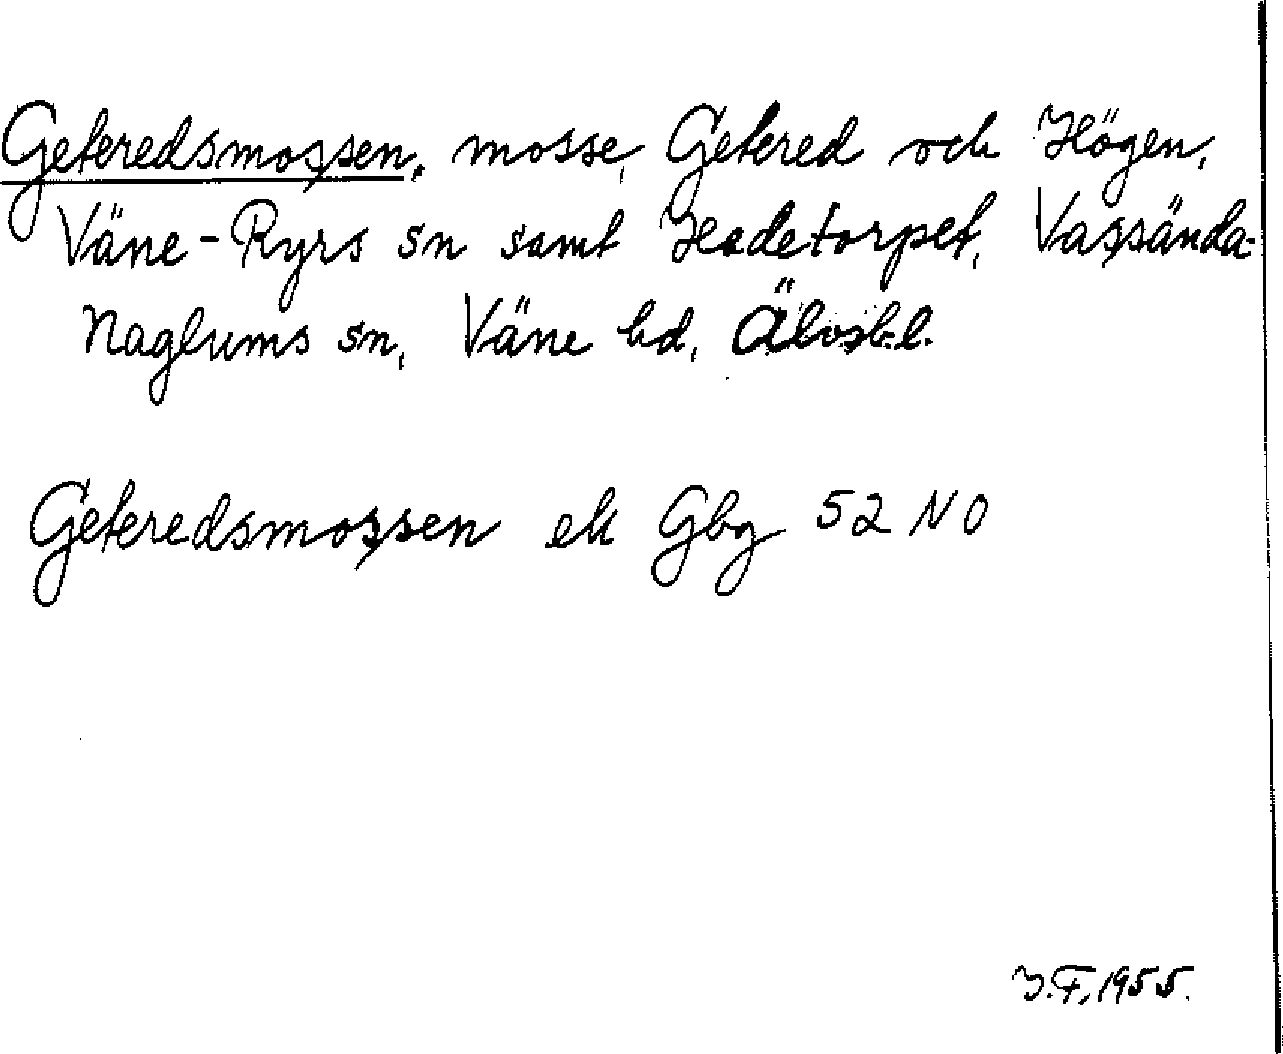 Getered​smossen, mosse, Getered och Högen,
Väne-Ryrs sn samt Hedetorpet, Vassända-
Naglums sn, Väne hd, Älvsb. l.
Geteredsmossen ek Gbg 52 NO
I.F. 1955.